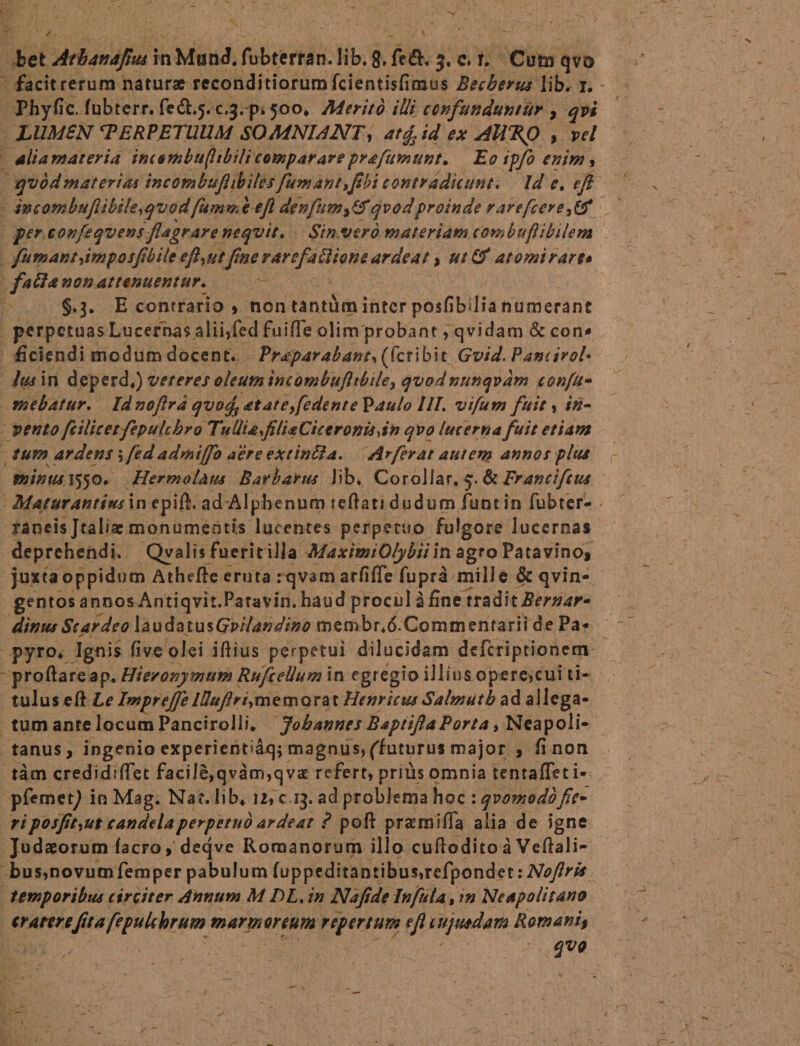 bet Athanasius in Mund. subterran. lib. 8. sect. 3. c. 1. Cum qvo
facit rerum naturæ reconditiorum scientissimus Becherus lib. 1.
Physic. subterr. sect. 5. c. 3. p. 500. Meritò illi confunduntur, qvi
LUMEN PERPETUUM SOMNIANT, atq; id ex AURO, vel
alia materia incombustibili comparare præsumunt. Eo ipso enim,
qvòd materias incombustibiles sumant, sibi contradicunt. Id e. est
incombustibile, qvod summè est densum, & qvod proinde rarescere, &
per conseqvens flagrare neqvit. Sin verò materiam combustibilem
sumant, impossibile est, ut sine rarefactione ardeat, ut & atomi rare-
facta non attenuentur.
§.3. E contrario, non tantùm inter possibilia numerant
perpetuas Lucernas alii, sed fuisse olim probant, qvidam & con-
ficiendi modum docent. Præparabant, (scribit Gvid. Pancirol-
lus in deperd.) veteres oleum incombustibile, qvod nunqvàm consu-
mebatur. Id nostrâ qvoq; ætate, sedente Paulo III. visum fuit, in-
vento scilicet sepulchro Tulliæ, filiæ Ciceronis, in qvo lucerna fuit etiam
tum ardens; sed admisso aëre extincta. Arserat autem annos plus
minus 1550. Hermolaus Barbarus lib. Corollar. 5. & Franciscus
Maturantius in epist. ad Alphenum testati dudum sunt in subter-
raneis Jtaliæ monumentis lucentes perpetuo fulgore lucernas
deprehendi. Qvalis fuerit illa Maximi Olybii in agro Patavino,
juxta oppidum Atheste eruta: qvam arsisse suprà mille & qvin-
gentos annos Antiqvit. Patavin. haud procul à fine tradit Bernar-
dinus Scardeo laudatus Gvilandino membr. 6. Commentarii de Pa-
pyro. Ignis sive olei istius perpetui dilucidam descriptionem
prostare ap. Hieronymum Ruscellum in egregio illius opere, cui ti-
tulus est Le Impresse Illustri, memorat Henricus Salmuth ad allega-
tum ante locum Pancirolli. Johannes Baptista Porta, Neapoli-
tanus, ingenio experientiâq; magnus, (futurus major, si non
tàm credidisset facilè, qvàm, qvæ refert, priùs omnia tentasset i-
psemet) in Mag. Nat. lib. 12, c. 13. ad problema hoc: qvomodò fie-
ri possit, ut candela perpetuò ardeat? post præmissa alia de igne
Judæorum sacro, deqve Romanorum illo custodito à Vestali-
bus, novum semper pabulum suppeditantibus, respondet: Nostris
temporibus circiter Annum MDL. in Naside Insula, in Neapolitano
cratere sita sepulchrum marmoreum repertum est cujusdam Romani,
qvo